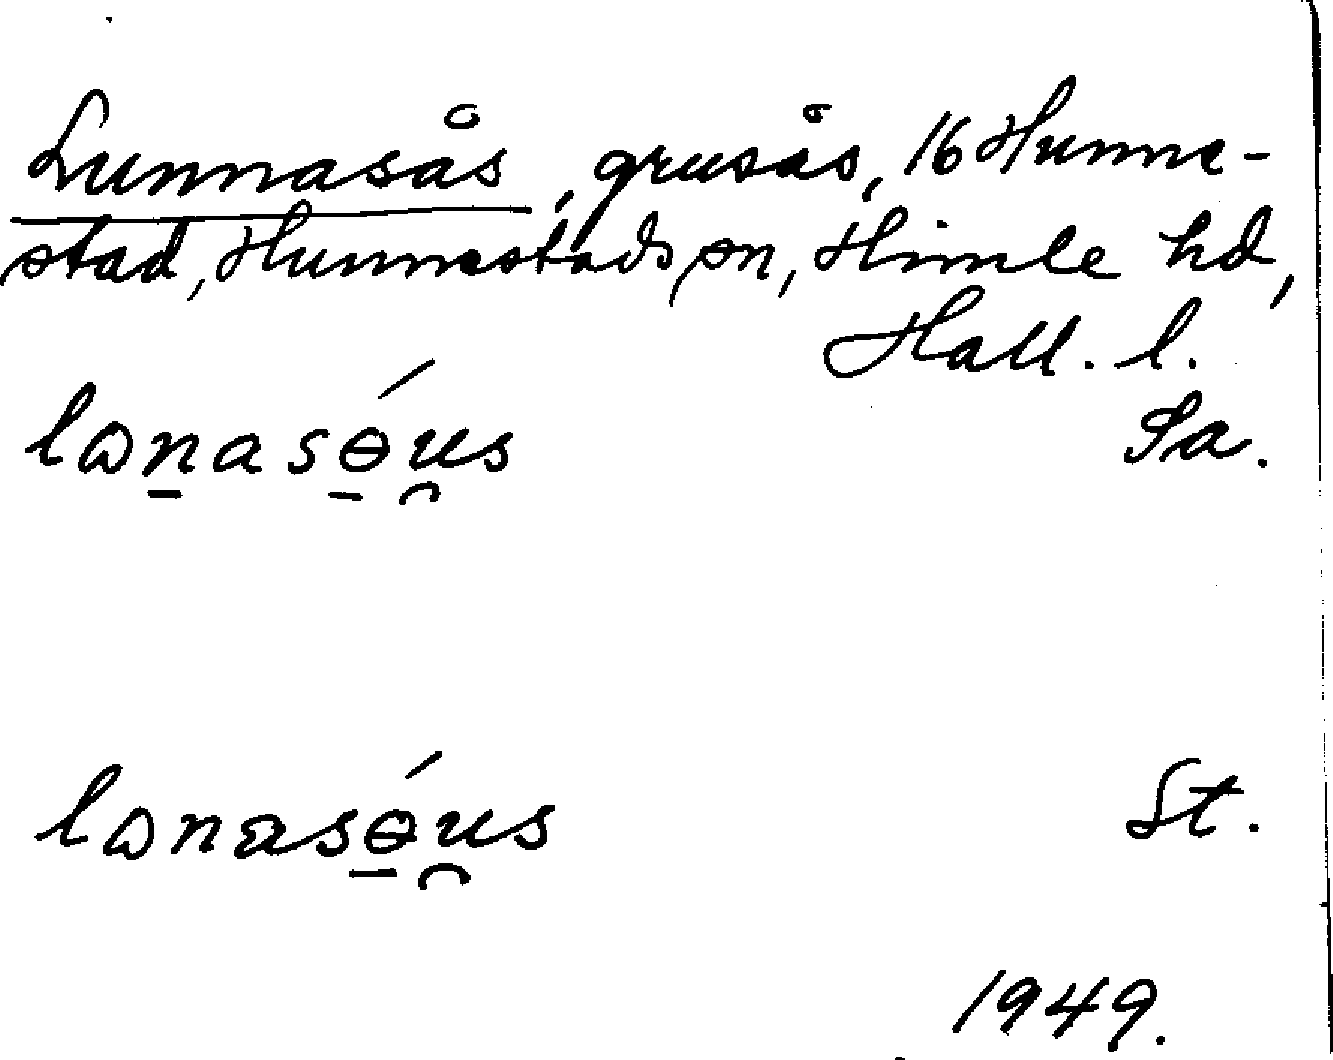 Lunnasås, grusås, 16 Hunne-
stad, Hunnestads sn, Himle hd,
Hall. l.
lɷn̠asɵ̠́u̯s Sa.
lɷnasɵ̠́u̯s St.
1949.